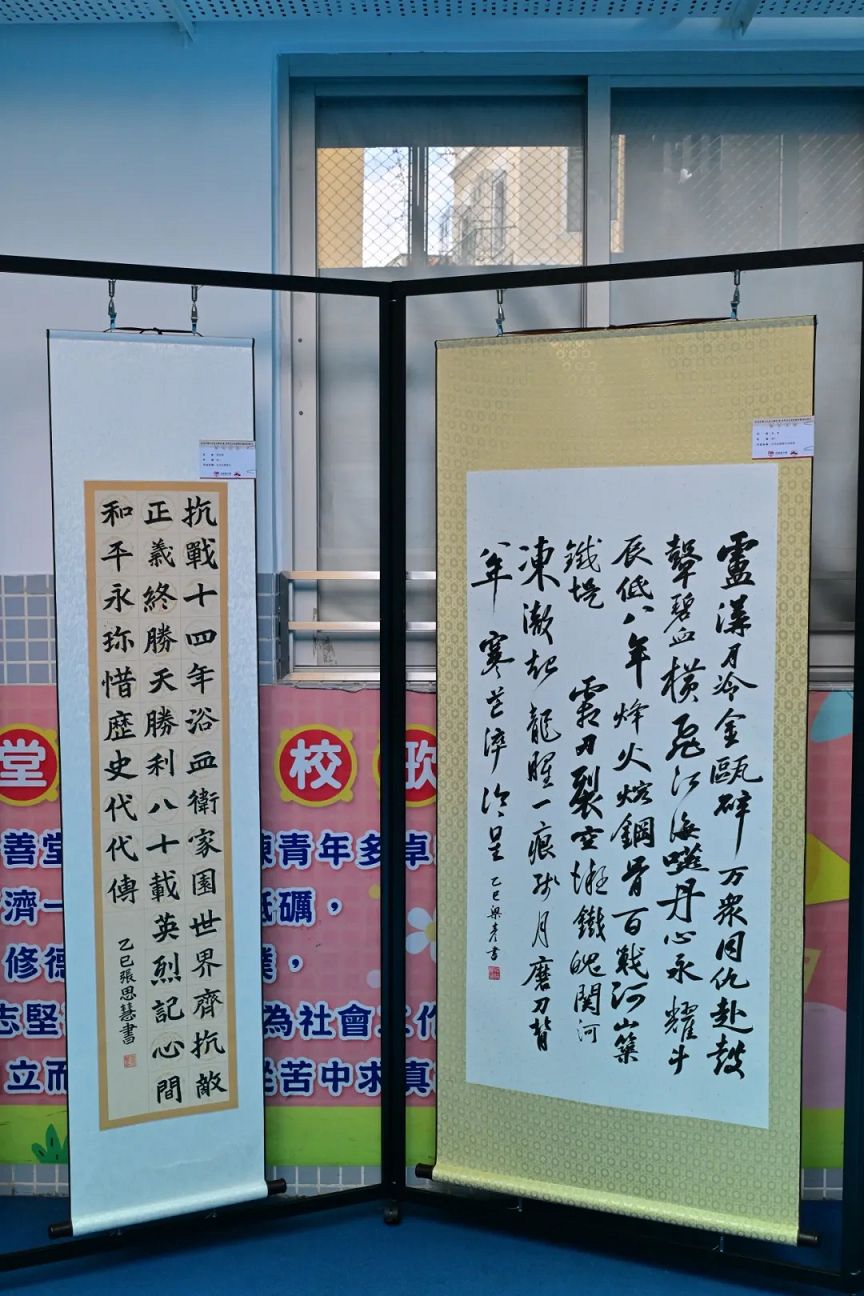 抗戰十四年浴血衛家園世界齊抗敵
正義終勝天勝利八十載英烈記心間
和平永珎惜歷史代代傳
乙巳張思慧書
盧溝月冷金甌碎万衆同仇赴鼓
鼙碧血橫飛江海噬丹心永耀斗
辰低八年烽火熔鋼骨百戰河山築
鐵堤 霜刃裂空凝鐵魄関河
凍澈起龍腥一痕殘月磨刀背
年寒芒淬冷星 乙巳梁彥書
堂 校歌
善堂 青年多卓
濟一 砥礪，
修德
志堅 為社會工作
立而 從苦中求真